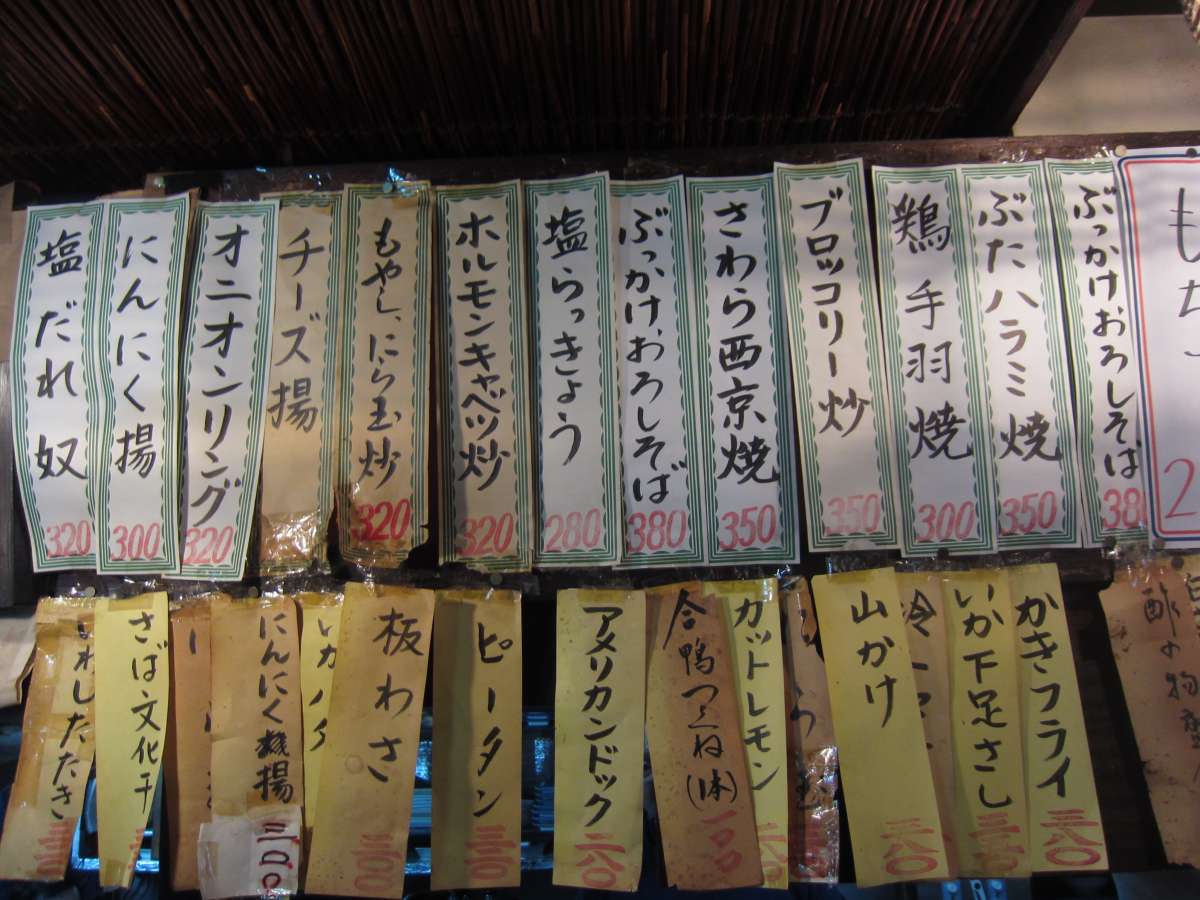 塩だれ奴 320
にんにく揚 300
オニオンリング 320
チーズ揚
もやし、にら玉炒 320
ホルモンキャベツ炒 320
塩らっきょう 280
ぶっかけおろしそば 380
さわら西京焼 350
ブロッコリー炒 350
鶏手羽焼 300
ぶたハラミ焼 350
ぶっかけおろしそば 38
もち
2
わしたたき 三三〇
さば文化干
にんにく揚 三〇〇
板わさ 三三〇
ピータン 三三〇
アメリカンドック 二八〇
合鴨つくね(1本) 一〇〇
ガットレモン
山かけ 二八〇
いか下足さし
かきフライ 三八〇
酢の物